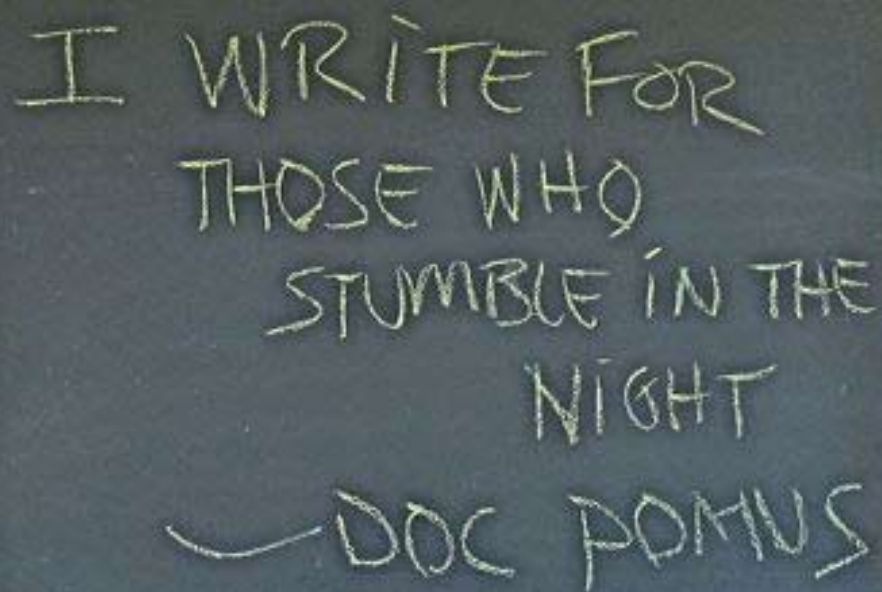 I WRiTE FOR
THOSE WHO
STUMBLE iN THE
NiGHT
— DOC POMUS